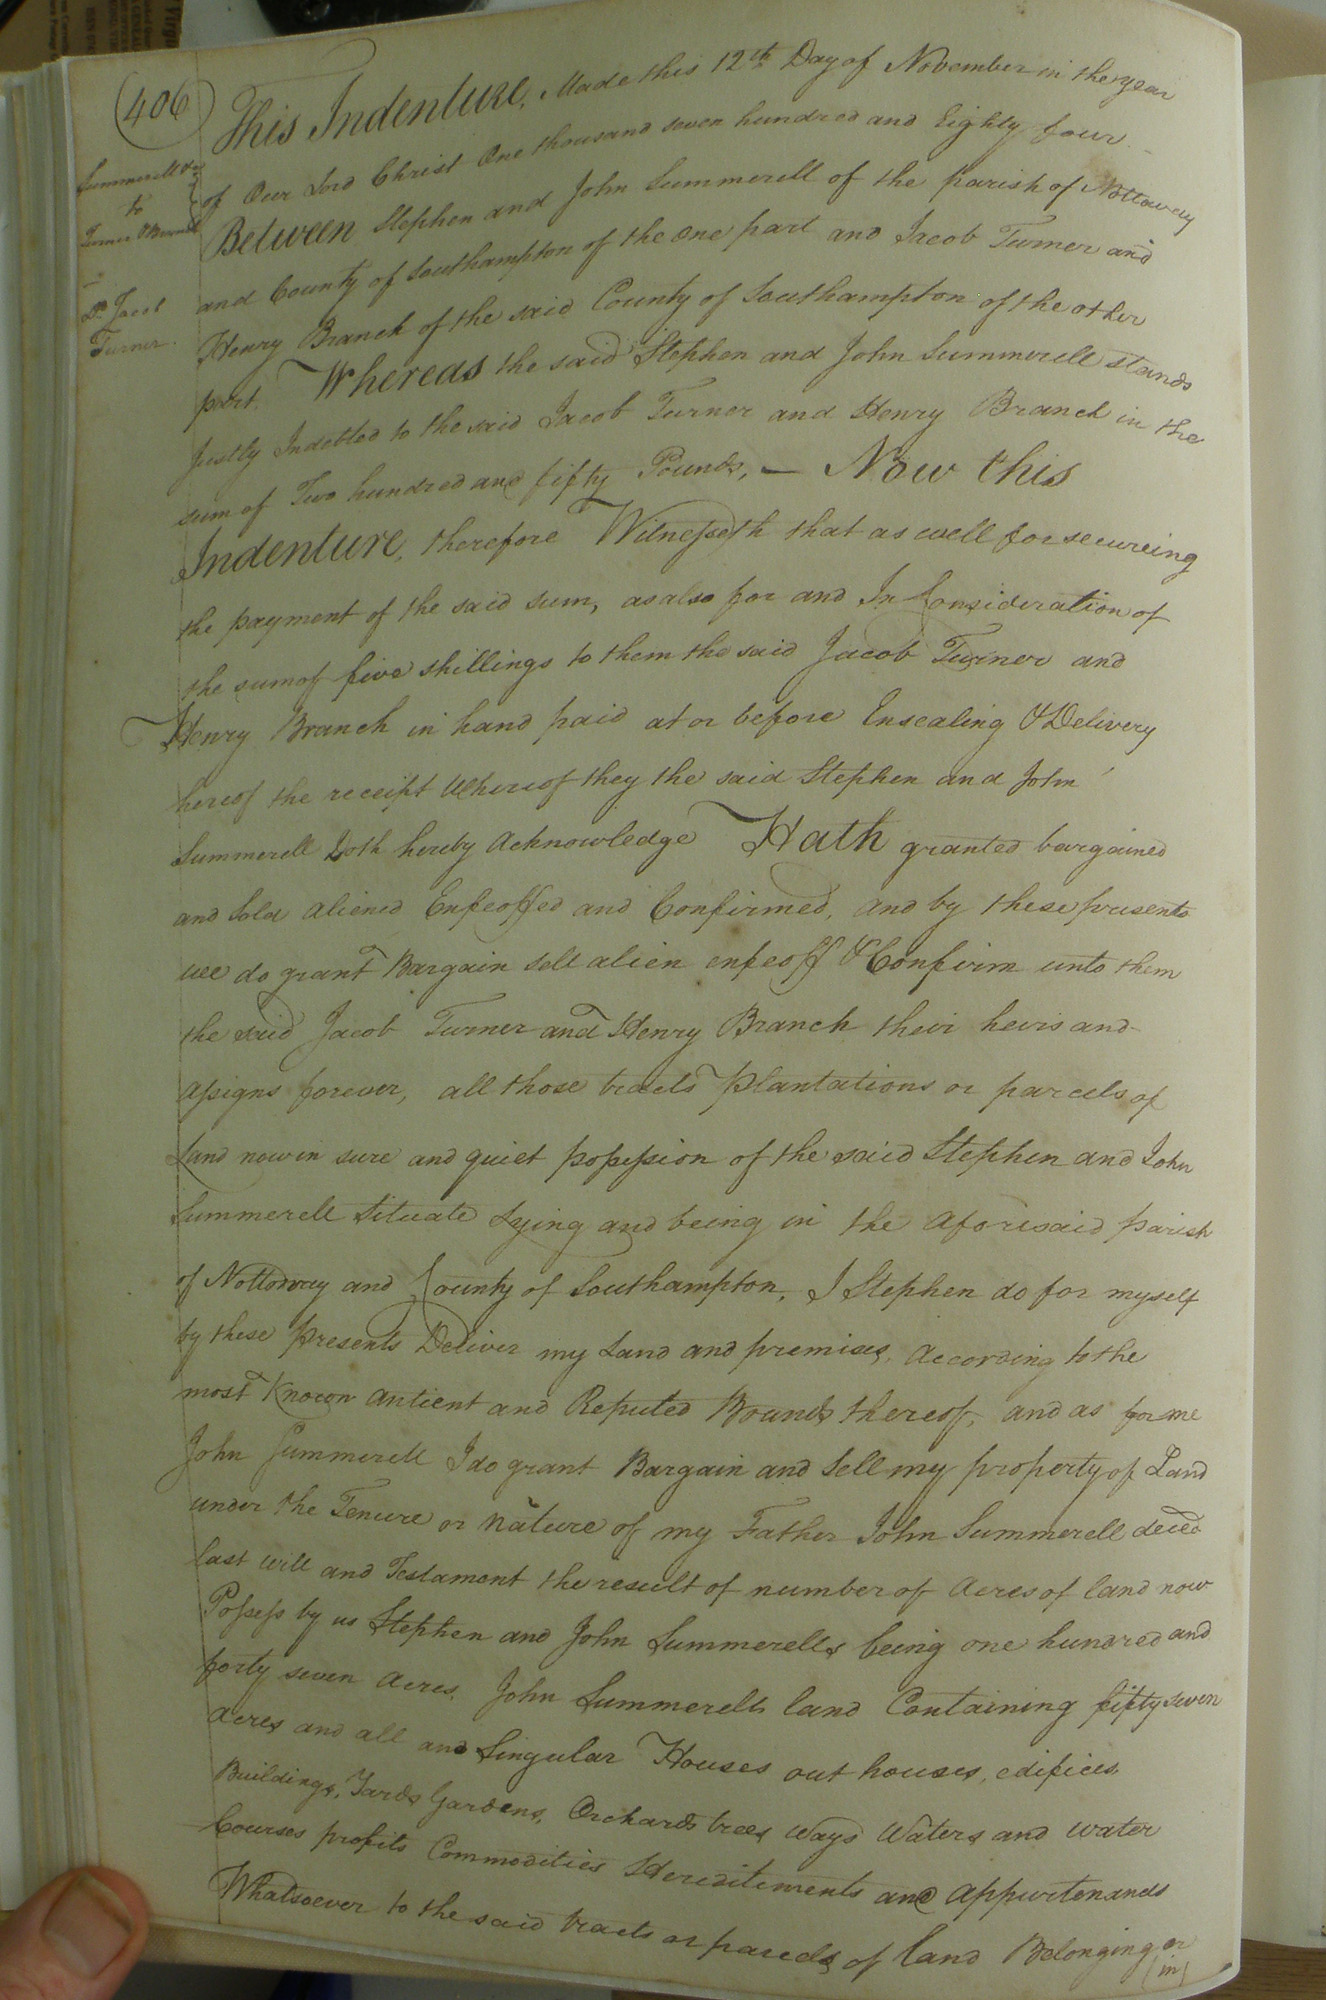 (406)
Summerell &c
to
Turner & Branch
Dd. Jacob
Turner.
This Indenture, Made this 12th Day of November in the year
of Our Lord Christ One thousand seven hundred and Eighty four
Between Stephen and John Summerell of the parish of Nottoway
and County of Southampton of the one part and Jacob Turner and
Henry Branch of the said County of Southampton of the other
part. Whereas the said Stephen and John Summerell stands
justly Indebted to the said Jacob Turner and Henry Branch in the
sum of Two hundred and fifty Pounds, — Now this
Indenture, therefore Witnesseth that as well for secureing
the payment of the said sum, as also for and In Consideration of
the sum of five shillings to them the said Jacob Turner and
Henry Branch in hand paid at or before Ensealing & Delivery
hereof the receipt Whereof they the said Stephen and John
Summerell Doth hereby Acknowledge Hath granted bargained
and Sold aliened Enfeoffed and Confirmed, and by these presents
we do grant Bargain Sell alien enfeoff & Confirm unto them
the said Jacob Turner and Henry Branch their heirs and
assigns forever, all those tracts plantations or parcels of
Land now in sure and quiet possession of the said Stephen and John
Summerell Situate Lying and being in the aforesaid parish
of Nottoway and County of Southampton, I Stephen do for myself
by these presents Deliver my Land and premises, According to the
most Known antient and Reputed Bounds thereof, and as for me
John Summerell I do grant Bargain and Sell my property of Land
under the Tenure or Nature of my Father John Summerell decd
last will and Testament the result of number of Acres of land now
Possess by us Stephen and John Summerells being one hundred and
forty seven Acres, John Summerells land Containing fifty seven
acres and all and Singular Houses out houses, edifices,
Buildings, Yards Gardens, Orchards trees Ways Waters and water
Courses profits Commodities Hereditements and appurtenands
Whatsoever to the said tracts or parcels of land Belonging or
(in)